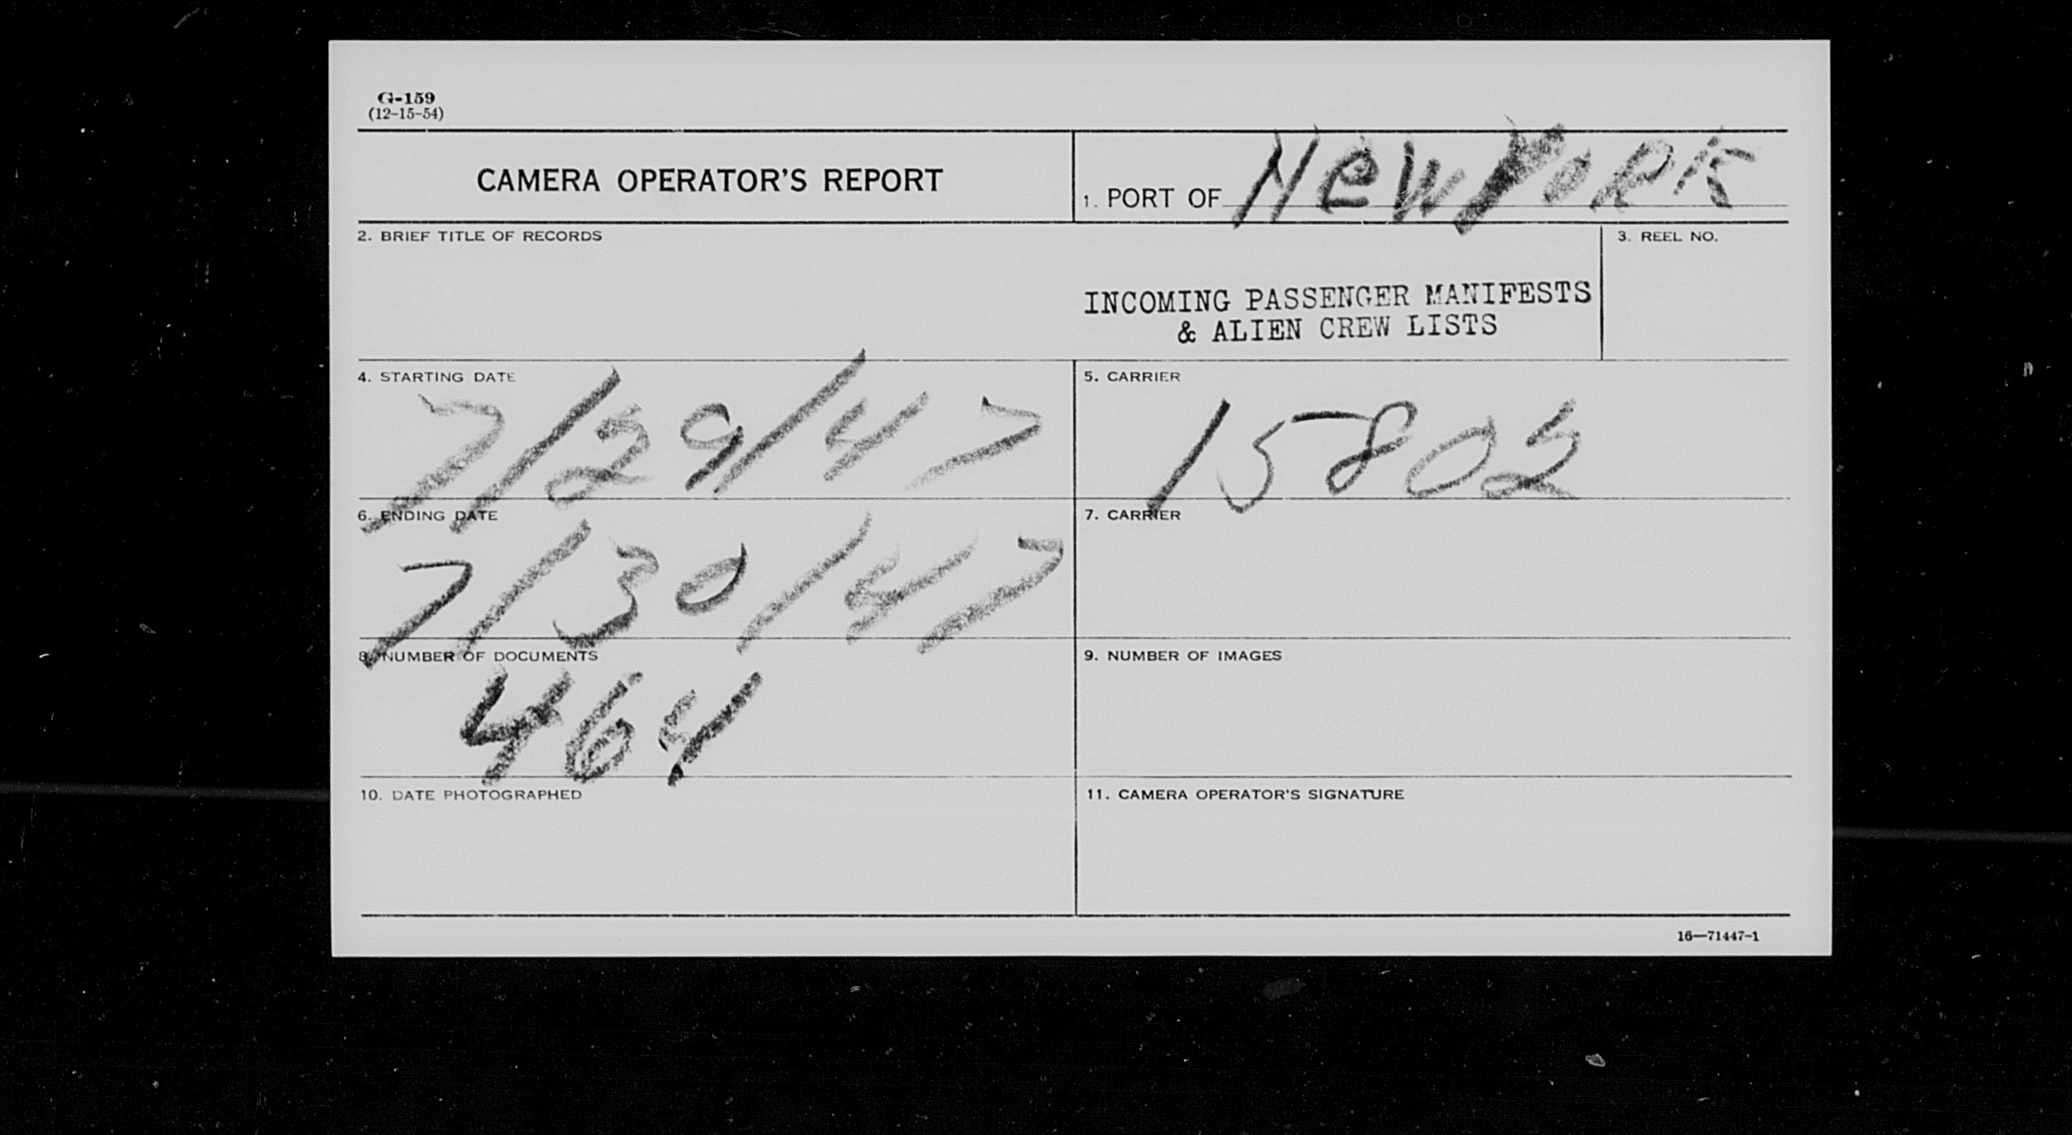 G-159
(12-15-54)
CAMERA OPERATOR'S REPORT
1. PORT OF New York
2. BRIEF TITLE OF RECORDS
3. REEL NO.
INCOMING PASSENGER MANIFESTS
& ALIEN CREW LISTS
4. STARTING DATE
7/29/47
5. CARRIER
15802
6. ENDING DATE
7/30/47
7. CARRIER
8. NUMBER OF DOCUMENTS
464
9. NUMBER OF IMAGES
10. DATE PHOTOGRAPHED
11. CAMERA OPERATOR'S SIGNATURE
16—71447-1